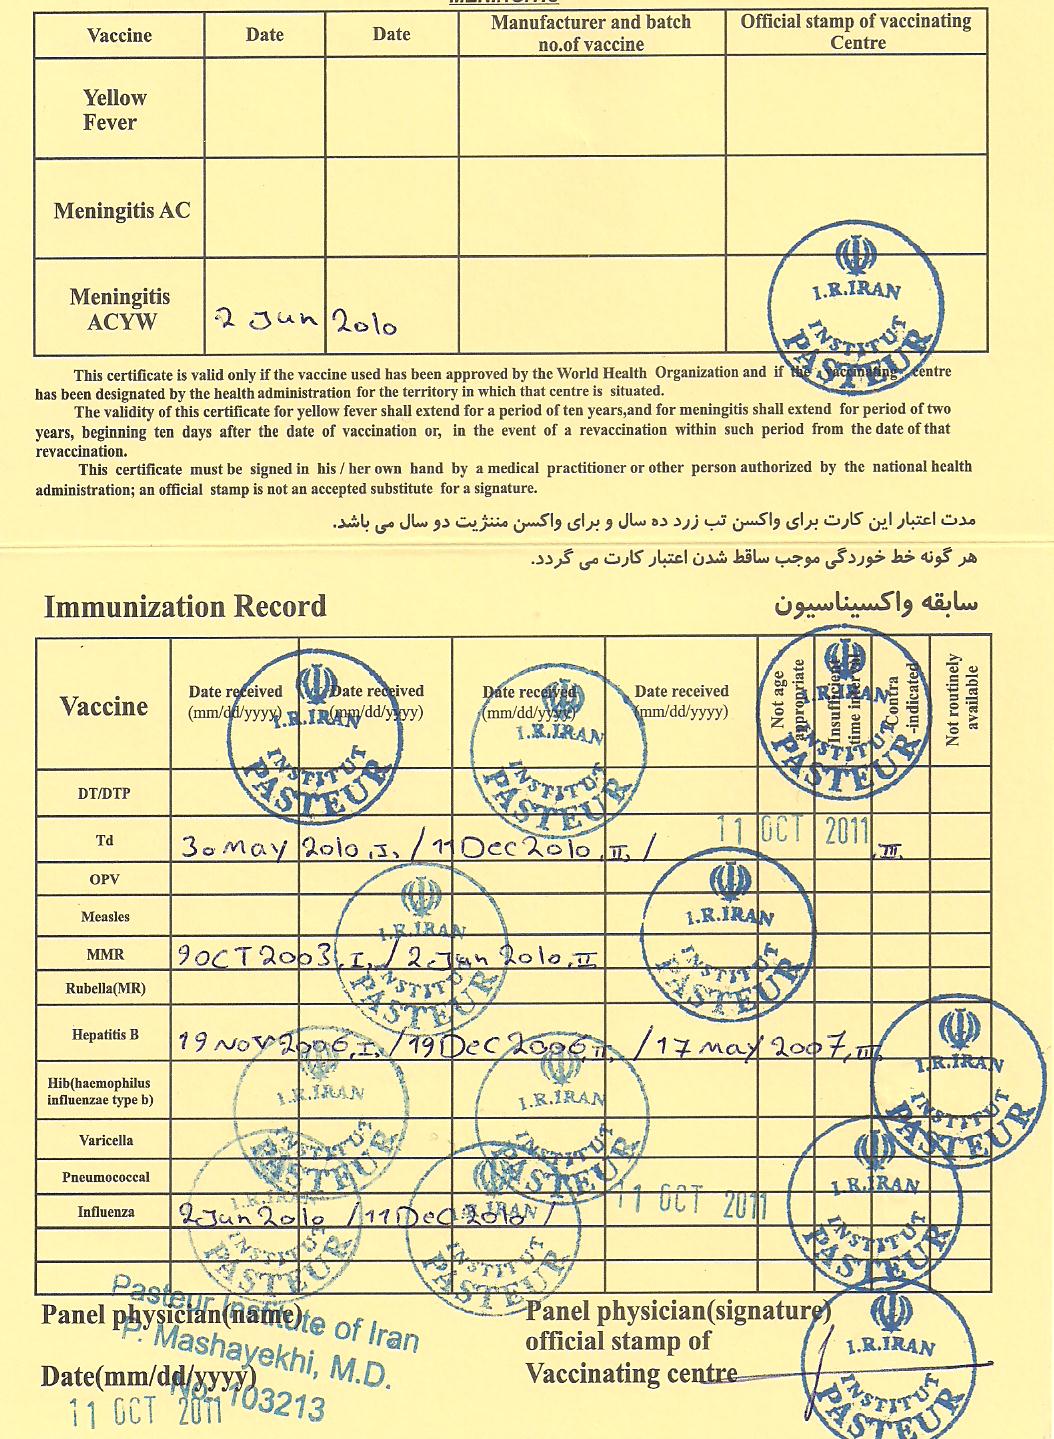 MENINGITIS
Vaccine Date Date Manufacturer and batch no.of vaccine Official stamp of vaccinating Centre
Yellow Fever
Meningitis AC
Meningitis ACYW 2 Jun 2010
I.R.IRAN
INSTITUT
PASTEUR
This certificate is valid only if the vaccine used has been approved by the World Health Organization and if the vaccinating centre
has been designated by the health administration for the territory in which that centre is situated.
The validity of this certificate for yellow fever shall extend for a period of ten years,and for meningitis shall extend for period of two
years, beginning ten days after the date of vaccination or, in the event of a revaccination within such period from the date of that
revaccination.
This certificate must be signed in his / her own hand by a medical practitioner or other person authorized by the national health
administration; an official stamp is not an accepted substitute for a signature.
مدت اعتبار این کارت برای واکسن تب زرد ده سال و برای واکسن مننژیت دو سال می باشد.
هر گونه خط خوردگی موجب ساقط شدن اعتبار کارت می گردد.
Immunization Record سابقه واکسیناسیون
Vaccine Date received (mm/dd/yyyy) Date received (mm/dd/yyyy) Date received (mm/dd/yyyy) Date received (mm/dd/yyyy) Not age appropriate Insufficient time interval Contra -indicated Not routinely available
I.R.IRAN INSTITUT PASTEUR
I.R.IRAN INSTITUT PASTEUR
I.R.IRAN INSTITUT PASTEUR
DT/DTP
Td 30 May 2010.I. / 11 Dec 2010.II. / 11 OCT 2011 .III.
OPV
Measles
I.R.IRAN INSTITUT PASTEUR
I.R.IRAN INSTITUT PASTEUR
MMR 9 OCT 2003.I. / 2 Jun 2010.II
Rubella(MR)
Hepatitis B 19 Nov 2006.I. / 19 Dec 2006.II. / 17 May 2007.III.
I.R.IRAN INSTITUT PASTEUR
Hib(haemophilus influenzae type b)
I.R.IRAN INSTITUT PASTEUR
I.R.IRAN INSTITUT PASTEUR
Varicella
Pneumococcal
Influenza 2 Jun 2010 / 11 Dec 2010 / 11 OCT 2011
I.R.IRAN INSTITUT PASTEUR
I.R.IRAN INSTITUT PASTEUR
I.R.IRAN INSTITUT PASTEUR
Panel physician(name)
Pasteur Institute of Iran
P. Mashayekhi, M.D.
No. 103213
Date(mm/dd/yyyy)
11 OCT 2011
Panel physician(signature)
official stamp of
Vaccinating centre
I.R.IRAN
INSTITUT
PASTEUR